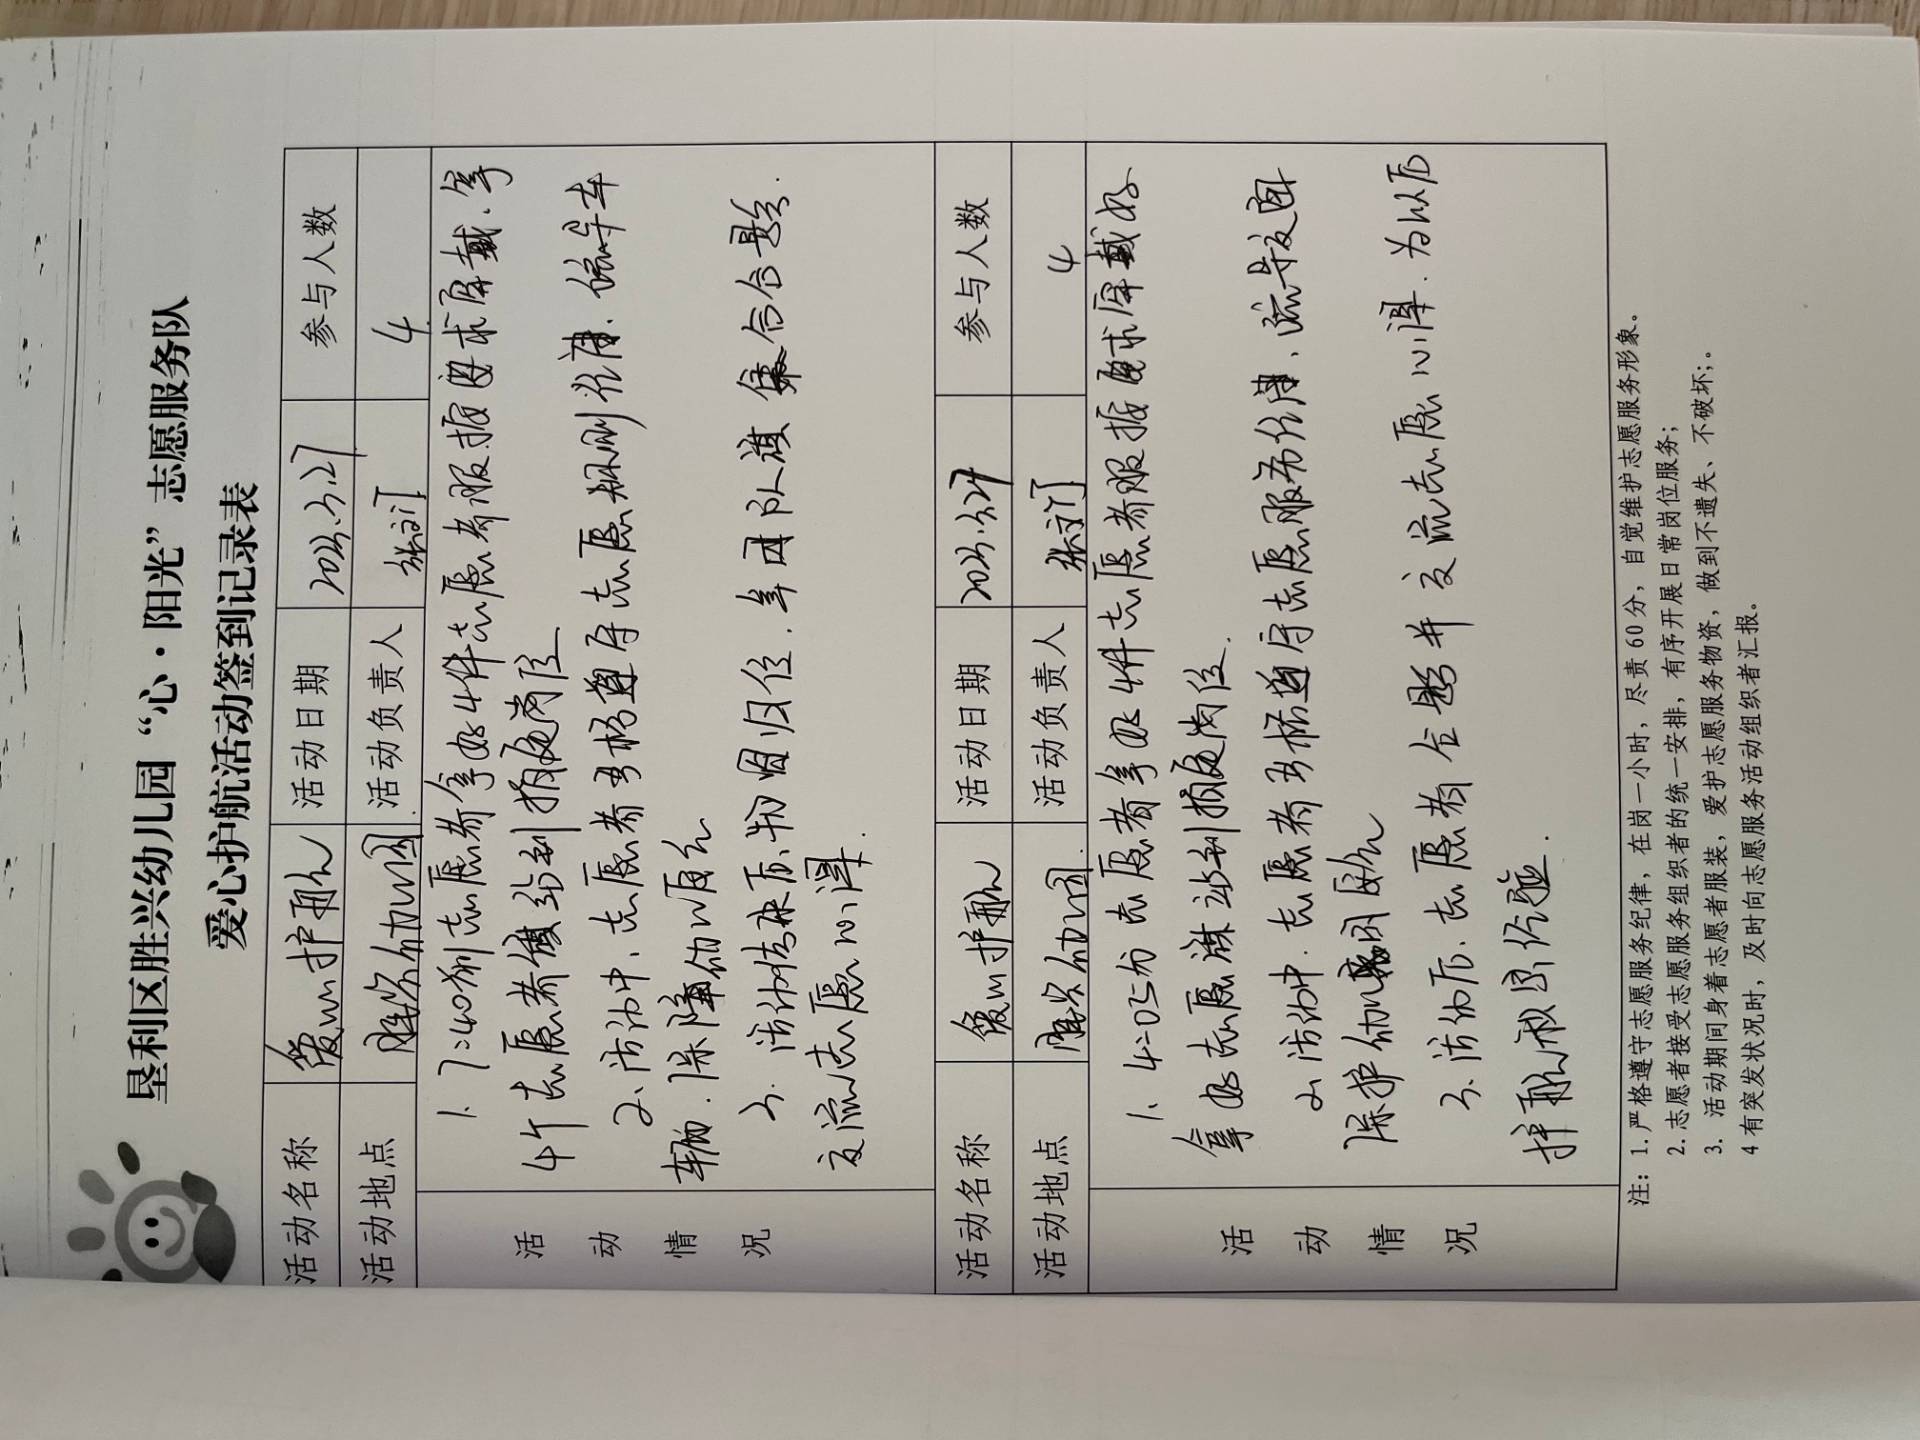 垦利区胜兴幼儿园“心·阳光”志愿服务队
爱心护航活动签到记录表
活动名称 爱心护航 活动日期 3.27 参与人数
活动地点 胜兴幼儿园 活动负责人 张 4
活动情况
1、7:40前志愿者拿好4件志愿者服按要求穿戴、拿
4个志愿者旗站到指定岗位
2、活动中、志愿者严格遵守志愿规则纪律、疏导车
辆、保障幼儿安全
3、活动结束后、物品归位、年团队旗集合合影、
交流志愿心得.
活动名称 爱心护航 活动日期 参与人数
活动地点 胜兴幼儿园 活动负责人 张 4
活动情况
1、4:05分志愿者拿好4件志愿者服按要求穿戴好
拿好志愿旗站到指定岗位.
2、活动中、志愿者严格遵守志愿服务纪律、疏导交通
保护幼儿安全
3、活动后、志愿者合影并交流志愿心得、为以后
护航积累经验.
注:1.严格遵守志愿服务纪律,在岗一小时,尽责60分,自觉维护志愿服务形象。
2.志愿者接受志愿服务组织者的统一安排,有序开展日常岗位服务;
3. 活动期间身着志愿者服装,爱护志愿服务物资,做到不遗失、不破坏;。
4 有突发状况时,及时向志愿服务活动组织者汇报。